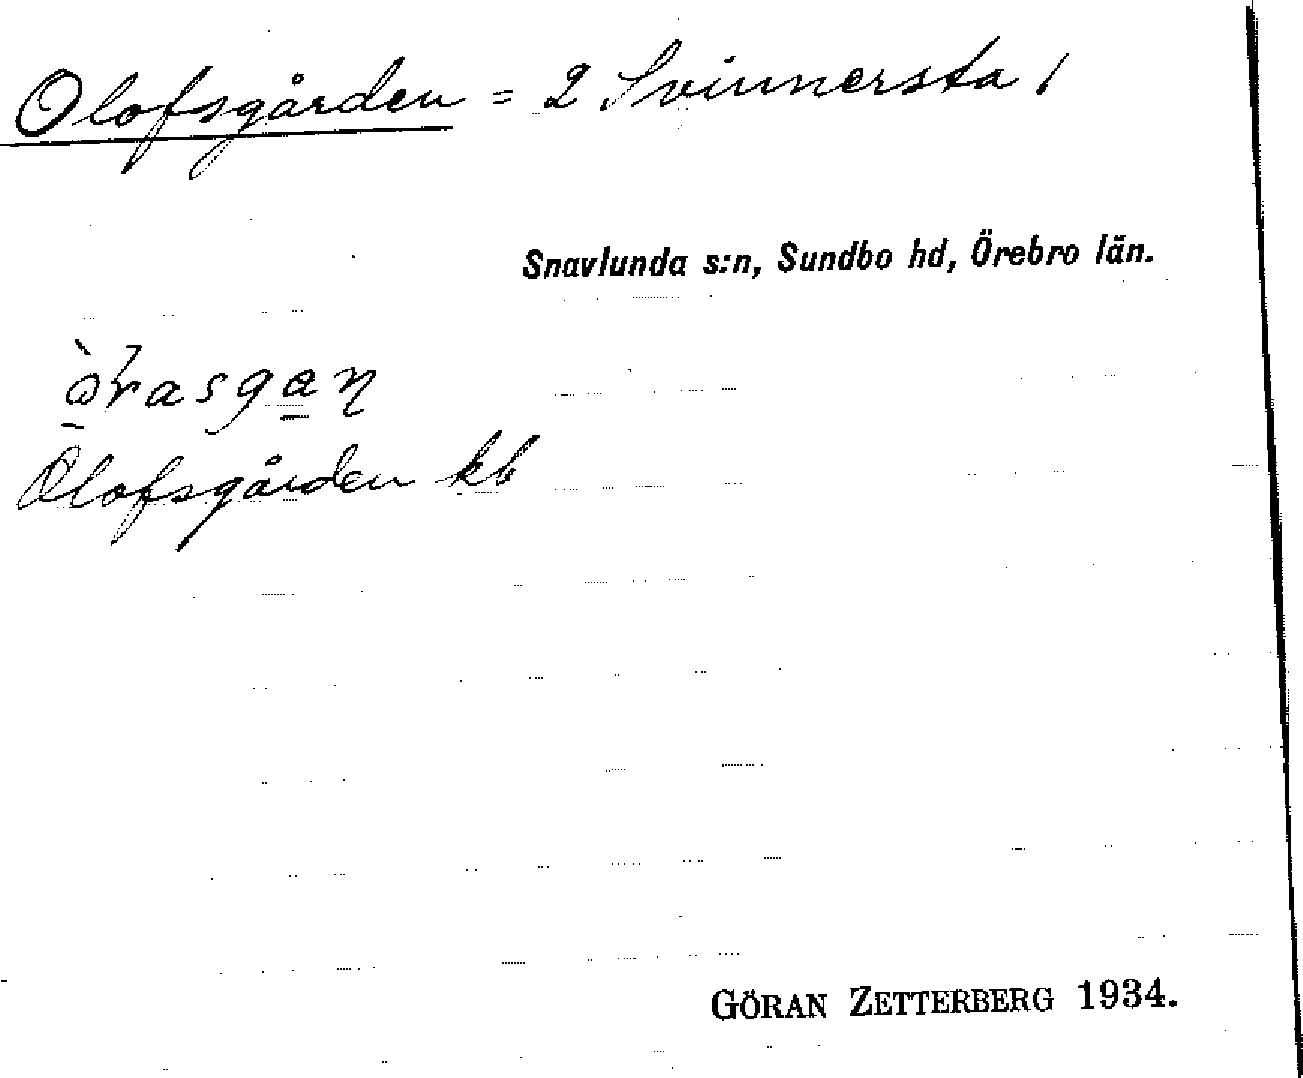 Olofsgården = 2 Svinnersta 1
Snavlunda s:n, Sundbo hd, Örebro län.
òrasgan
Olofsgården kb
GÖRAN ZETTERBERG 1934.